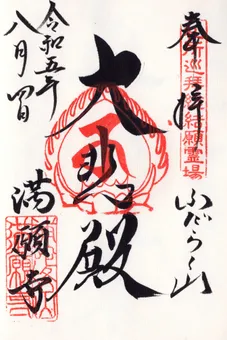 奉拝
巡拝結願霊場
ふだらく山
大悲殿
満願寺
令和五年
八月四日